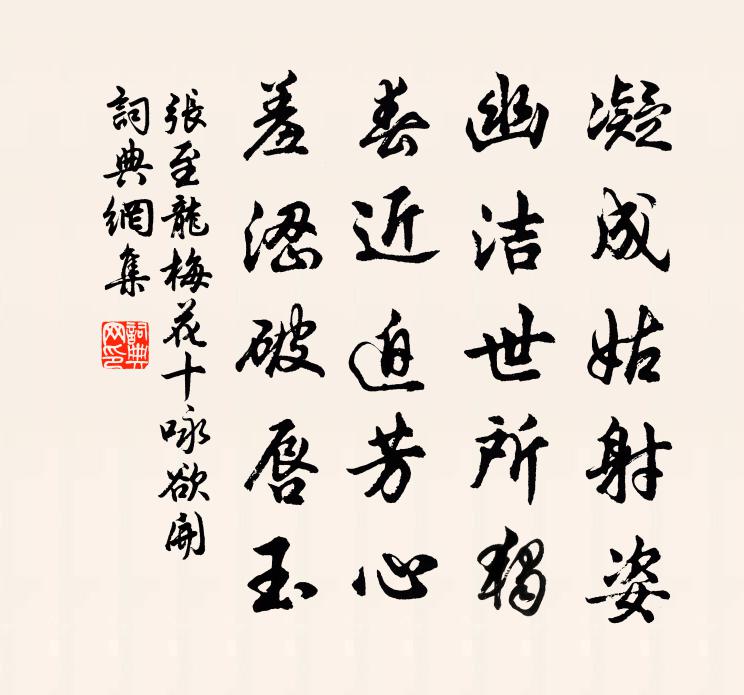 凝成姑射姿
幽洁世所獨
春近迫芳心
羞澀破唇玉
張至龍梅花十咏欲開
詞典網集
詞典網印